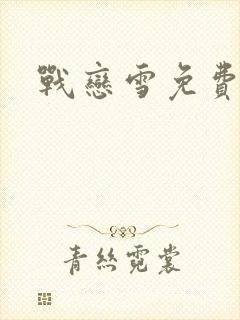 戰戀雪免費
青絲霓裳